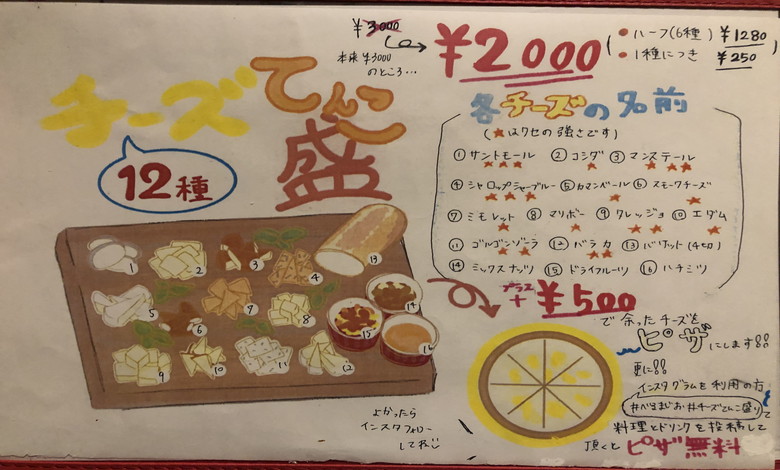 チーズてんこ盛
12種
¥3000
本来¥3000
のところ…
¥2000
(●ハーフ(6種) ¥1280
●1種につき ¥250
各チーズの名前
(★はクセの強さです)
①サントモール ②コンダ ③マンステール
★★★ ★ ★★★
④シャロップシャーブルー ⑤カマンベール ⑥スモークチーズ
★★★ ★ ★
⑦ミモレット ⑧マリボー ⑨クレッジョ ⑩エダム
★ ★ ★★ ★
⑪ゴルゴンゾーラ ⑫バラカ ⑬バゲット(4切)
★★ ★★
⑭ミックスナッツ ⑮ドライフルーツ ⑯ハチミツ
1 2 3 4 13
5 6 7 8 15 14
9 10 11 12 16
プラス
+ ¥500
で余ったチーズを
ピザにします!!
更に!!
インスタグラムを利用の方
#チーズてんこ盛り
料理とドリンクを投稿して
頂くとピザ無料
よかったら
インスタフォロー
してね